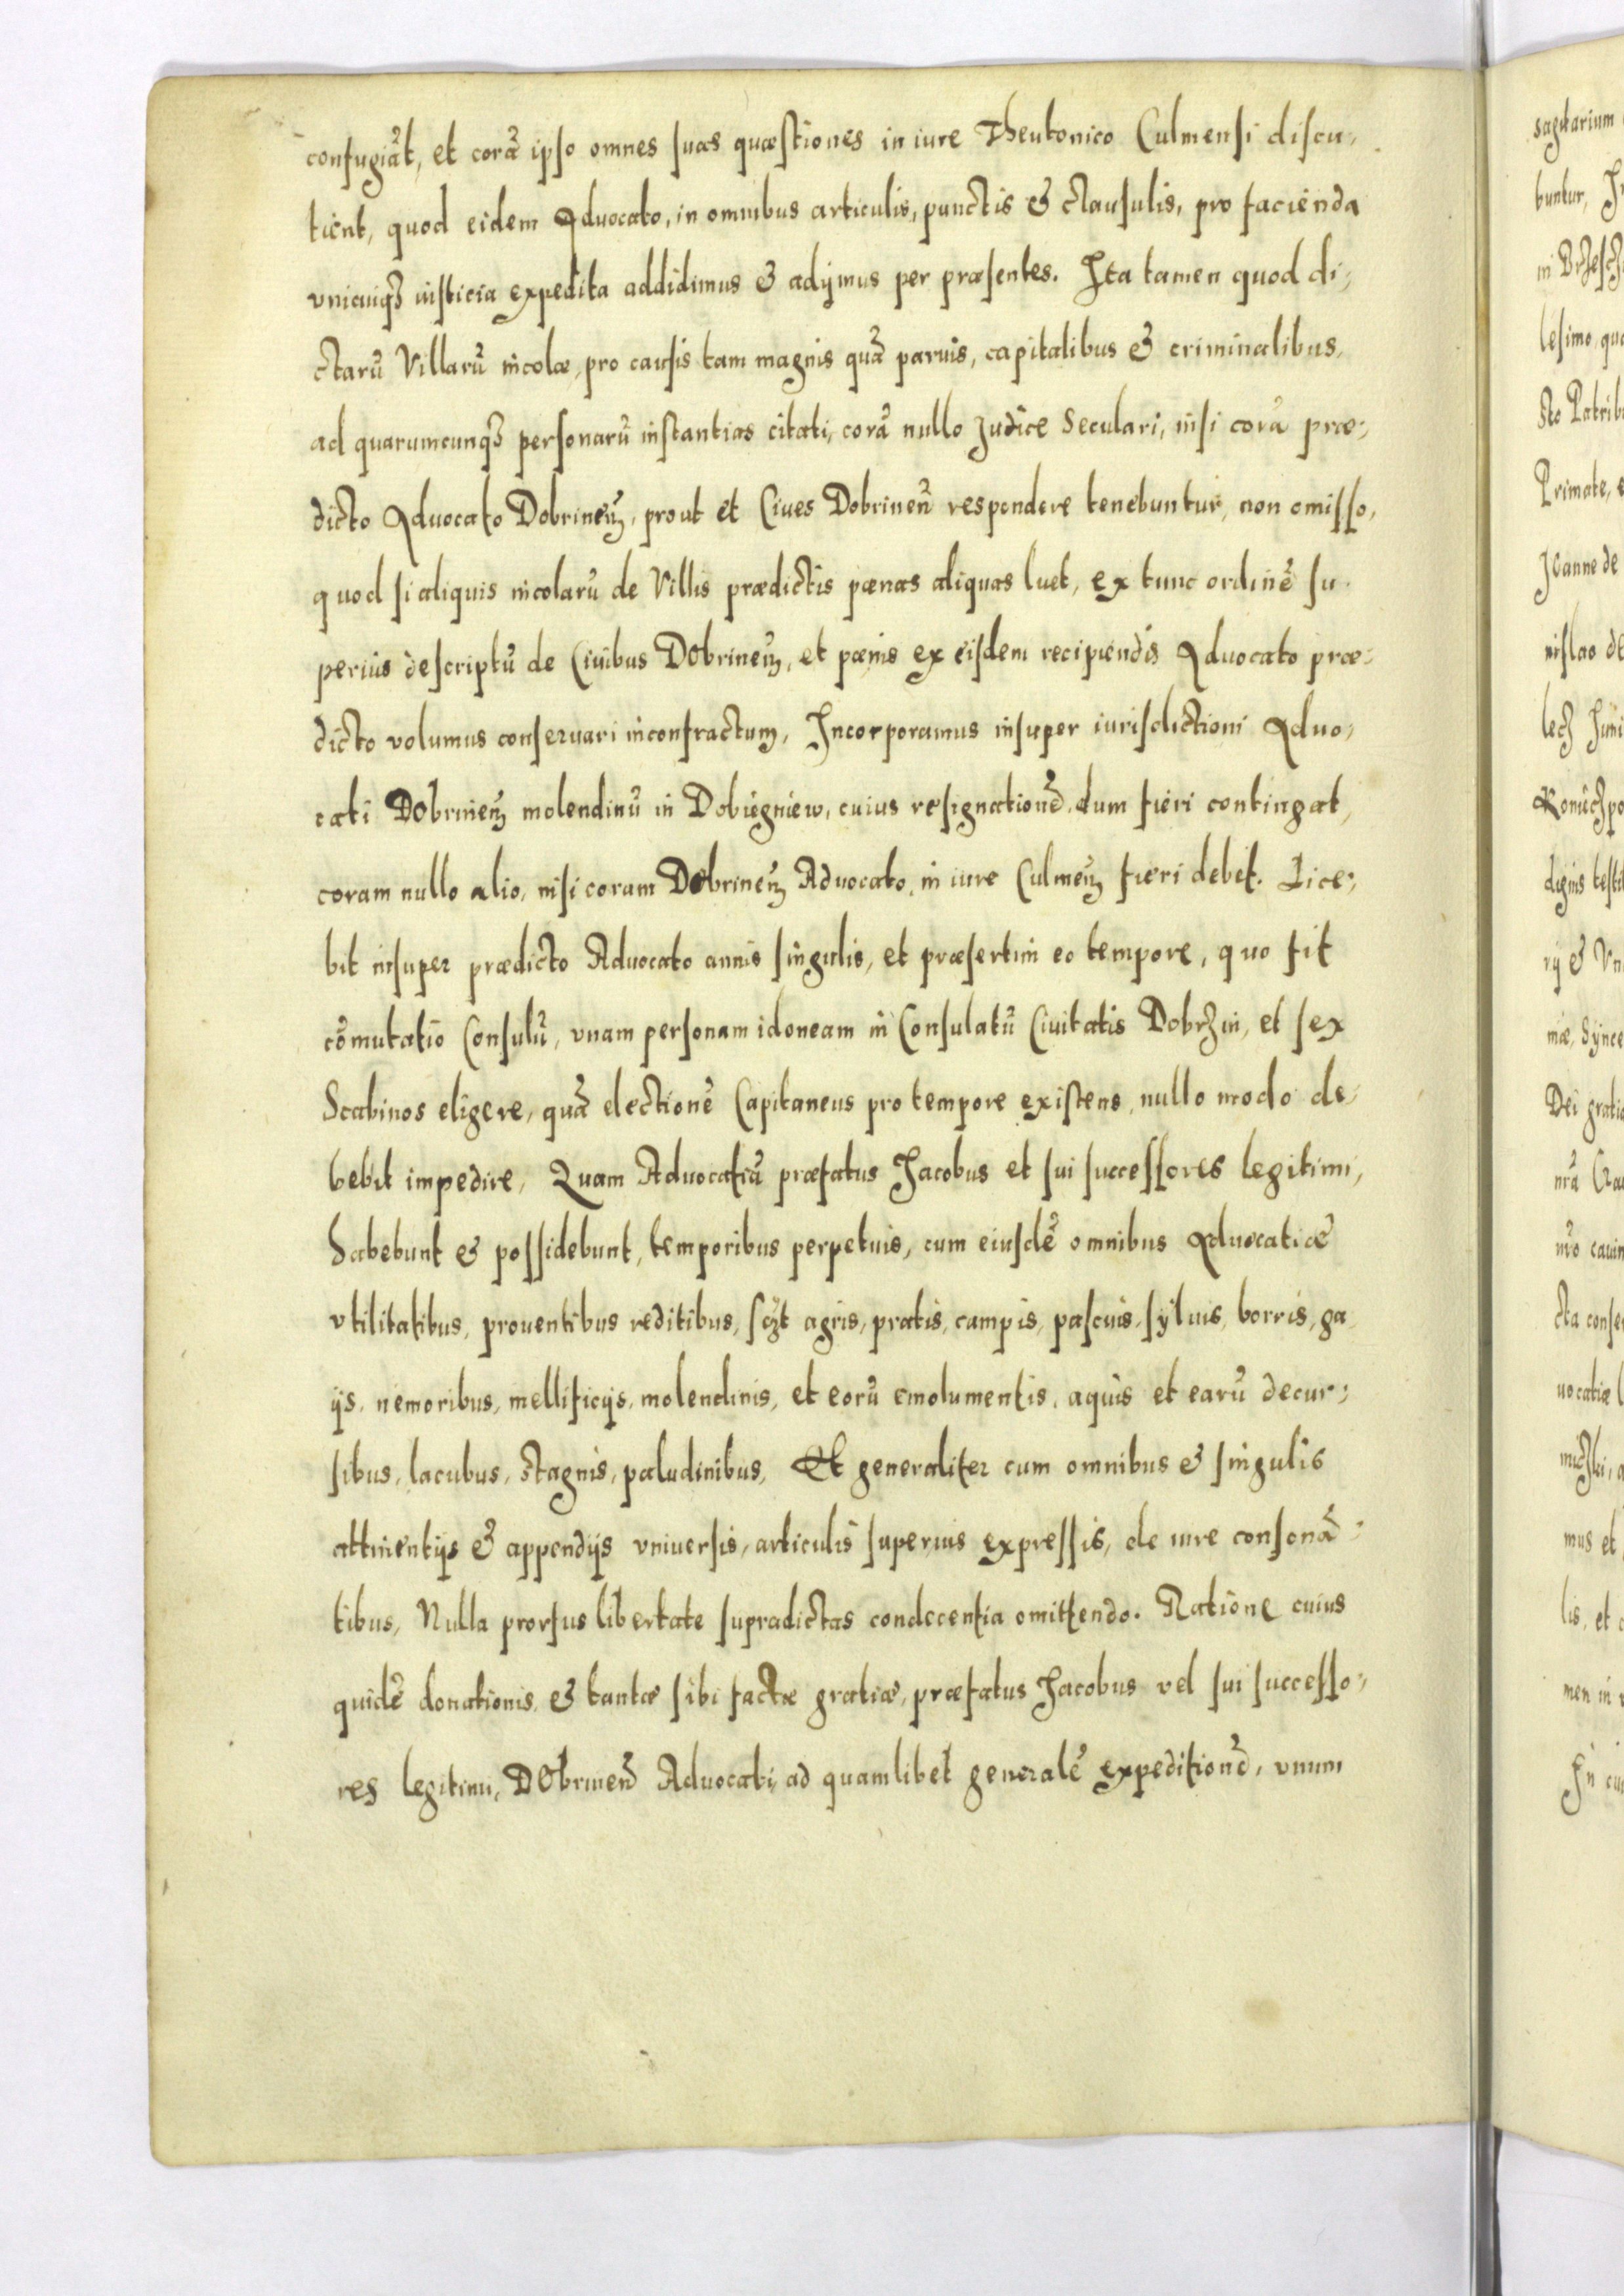 confugiāt, et corā ipso omnes suas quæstiones in iure Theutonico Culmensi discu-
tiēnt, quod eidem Advocato, in omnibus articulis, punctis & clausulis, pro facienda
vnicuiqȝ iusticia expedita addidimus & adijmus per præsentes. Ita tamen quod di-
ctarū Villarū incolæ, pro causis tam magnis quā paruis, capitalibus & criminalibus,
ad quarumcunqȝ personarū instantias citati, corā nullo Judice Seculari, nisi corā præ-
dicto Advocato Dobrineñ, prout et Ciues Dobrineñ respondere tenebuntur, non omisso,
quod si aliquis incolarū de Villis prædictis pœnas aliquas luet, ex tunc ordinē su-
perius descriptū de Ciuibus Dobrineñ, et pœnis ex eisdem recipiendis Advocato præ-
dicto volumus conseruari infractum, Incorporamus insuper iurisdictioni Advo-
cati Dobrineñ molendinū in Dobiegniew, cuius resignationē, dum fieri contingat,
coram nullo alio, nisi coram Dobrineñ Advocato, in iure Culmeñ fieri debet. Lice-
bit insuper prædicto Advocato annis singulis, et præsertim eo tempore, quo fit
cōmutatio Consulū, vnam personam idoneam in Consulatū Ciuitatis Dobrzin, et sex
Scabinos eligere, quā electionē Capitaneus pro tempore existens, nullo modo de-
bebit impedire, Quam Advocatiā præfatus Jacobus et sui successores legitimi,
habebunt & possidebunt, temporibus perpetuis, cum eiusdē omnibus Advocatiæ
vtilitatibus, prouentibus reditibus, sczt agris, pratis, campis, pascuis, syluis, borris, ga-
ijs, nemoribus, mellificijs, molendinis, et eorū emolumentis, aquis et earū decur-
sibus, lacubus, stagnis, paludinibus, Et generaliter cum omnibus & singulis
attinentijs & appendijs vniuersis, articulis superius expressis, de iure consonā-
tibus, Nulla prorsus libertate supradictas condecentia omittendo. Ratione cuius
quidē donationis, & tantæ sibi factæ gratiæ, præfatus Jacobus vel sui successo-
res legitimi, Dobrineñ Advocati, ad quamlibet generalē expeditionē, vnum
sagitarium
buntur,
lesimo
Primate,
Joanne de
nislao de
Dei gratia
lis, et
men in